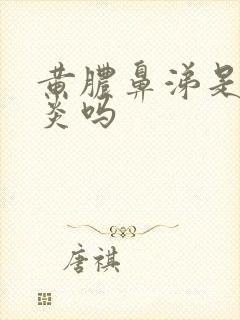 黄脓鼻涕是
炎吗
唐祺